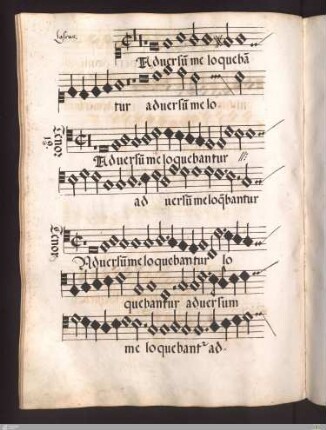 Adversũ me loquebã
tur adversũ me lo
Tenor
Adversũ me loquebantur
ad versũ me loq̃bantur
Tenor
Adversũ me loquebantur lo
quebantur adversum
me loquebant² ad.